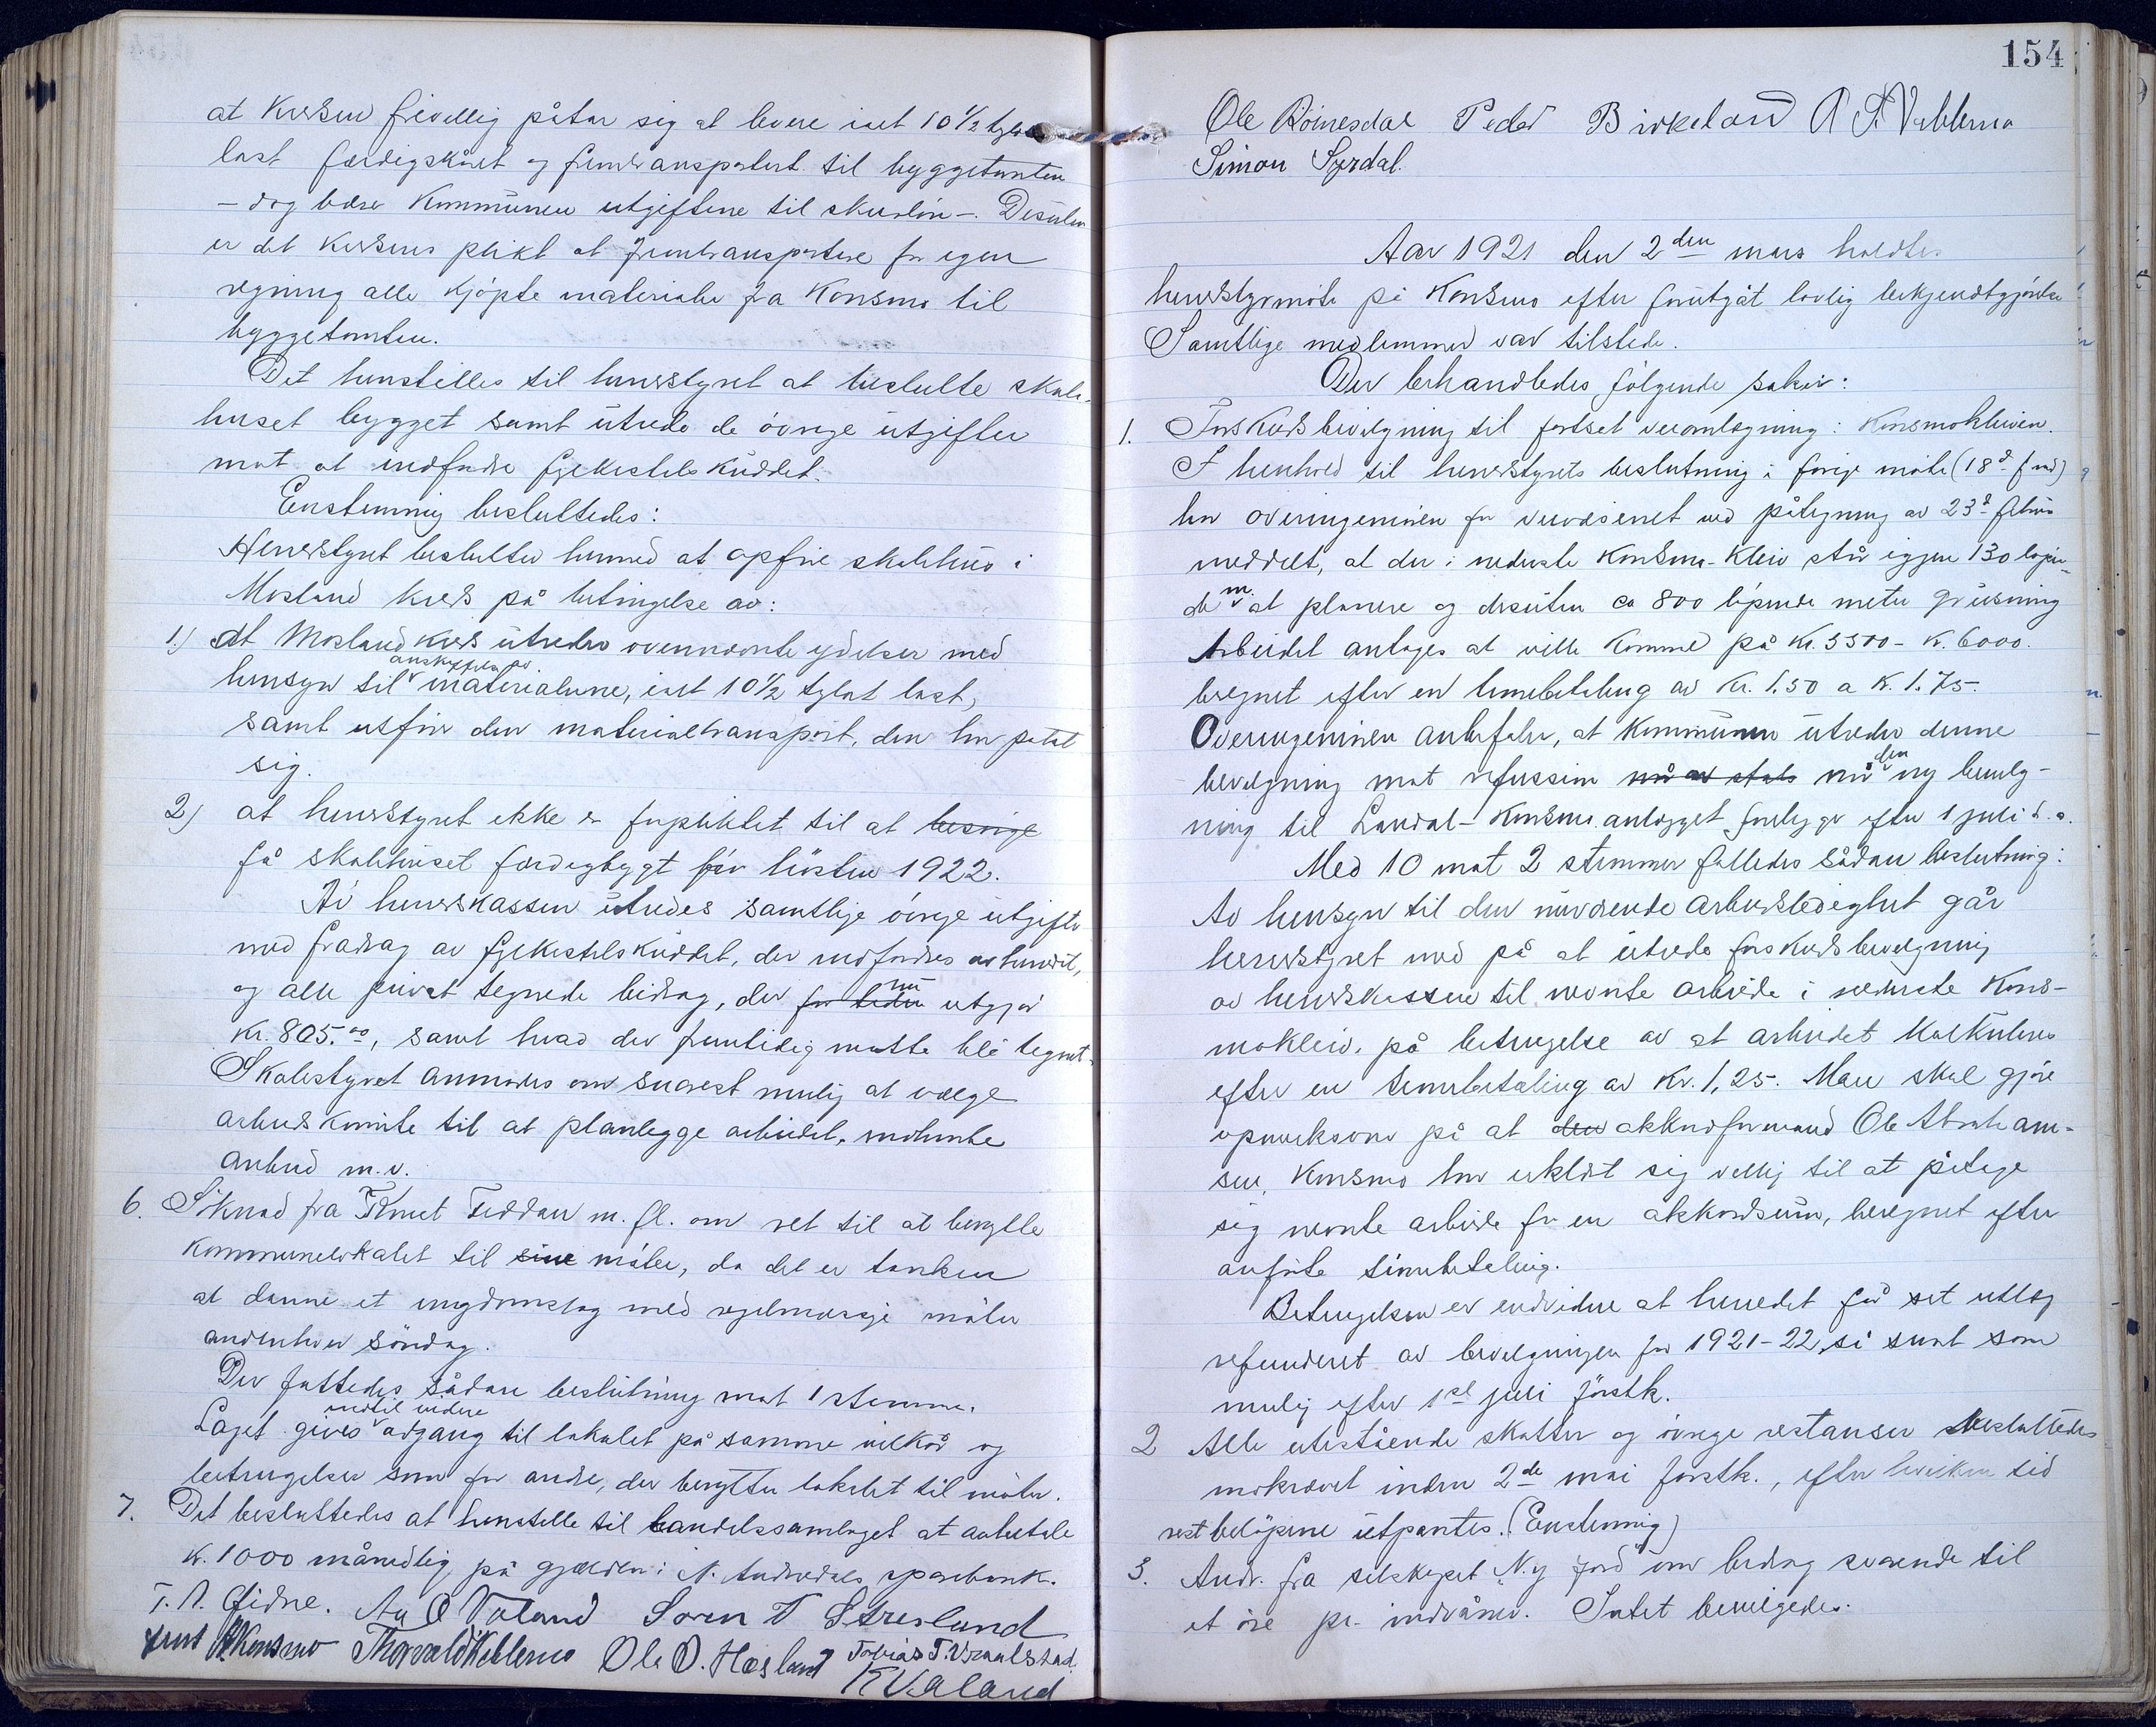 at kredsen frivillig påtar sig at levere ialt 10 1/2 tylvt
last færdigskåret og fremtransportert til byggetomten
- dog bærer kommunen utgiftene til skurløn -. Desuten
er det kredsens plikt at fremtransportere for egen
regning alle kjøpte materialer fra Konsmo til
byggetomten.
Det henstilles til herredstyret at beslutte skole-
huset bygget samt utrede de øvrige utgifter
mot at indfordre fylkestilskuddet.
Enstemmig besluttedes:
Herredstyret beslutter herved at opføre skolehus i
Mosland kreds på betingelse av:
1.) At Mosland kreds utreder ovennævnte ydelser med
hensyn til anskaffelse av materialerne, ialt 10 1/2 tylvt last,
samt utfører den materialtransport, den har påtat
sig.
2) at herredstyret ikke er forpliktet til at besørge
få skolehuset færdigbygt før høsten 1922.
Av herredskassen utredes samtlige øvrige utgifter
med fradrag av fylkestilskuddet, der indfordres av herredet,
og alle privat tegnede bidrag, der for tiden nu utgjør
Kr. 805.00, samt hvad der fremtidig måtte bli tegnet.
Skolestyret anmodes om snarest mulig at vælge
arbeidskomite til at planlegge arbeidet, indhente
anbud m.v.
6. Søknad fra Knut Feddan m.fl. om ret til at benytte
kommunelokalet til sine møter, da det er tanken
at danne et ungdomslag med regelmæssige møter
andenhver søndag.
Der fattedes sådan beslutning mot 1 stemme.
Laget gives indtil videre adgang til lokalet på samme vilkår og
betingelser som for andre, der benytter lokalet til møter.
7. Det besluttedes at henstille til handelssamlaget at avbetale
kr. 1000 månedlig på gjælden i N. Audnedals sparebank.
T. A. Eidne. Aa O Valand Soren T Streslund
Knut Konsmo Thorvald Vehlemo Ole O. Hesland Tobias T. Vraalstad
K Valand
154
Ole Röinesdal Peder Birkeland A S. Vehlemo
Simon Syrdal.
Aar 1921 den 2den mars holdtes
herredstyremøte på Konsmo efter forutgåt lovlig bekjendtgjørelse
Samtlige medlemmer var tilstede.
Der behandledes følgende saker:
1. Forskudsbevilgning til fortsat veiomlægning: Konsmokleiven.
I henhold til herredstyrets beslutning i forrige møte (18d. f md)
har overingeniøren for veivæsenet ved påtegning av 23d februar
meddelt, at der i nederste Konsmo-kleiv står igjen 130 løpen-
de m. at planere og desuten ca 800 løpende meter grusning
Arbeidet antages at ville komme på kr. 5500 - kr. 6000.
beregnet efter en timebetaling av kr. 1.50 a kr. 1.75.
Overingeniøren anbefaler, at kommunen utreder denne
bevilgning mot refusion når av stats når den ny bevilg-
ning til Laudal-Konsmo anlægget foreligger efter 1 juli d.a.
Med 10 mot 2 stemmer fattedes sådan beslutning:
Av hensyn til den nuværende arbeidsledighet går
herredstyret med på at utrede forskudsbevilgning
av herredskassen til nevnte arbeide i nederste Kons-
mokleiv, på betingelse av at arbeidet kalkuleres
efter en timebetaling av Kr. 1,25. Man skal gjøre
opmerksom på at den akkordformand Ole Abraham-
sen, Konsmo har erklært sig villig til at påtage
sig nevnte arbeide for en akkordsum, beregnet efter
anførte timebetaling.
Betingelsen er endvidere at herredet får sit utlæg
refunderet av bevilgningen for 1921-22, så snart som
mulig efter 1st juli førstk.
2 Alle utestående skatter og øvrige restanser besluttedes
indkrævet inden 2de mai førstk., efter hvilken tid
restbeløpene utpantes. (Enstemmig)
3. Andr. fra selskapet "Ny jord" om bidrag svarende til
et øre pr. indvåner. Intet bevilgedes.